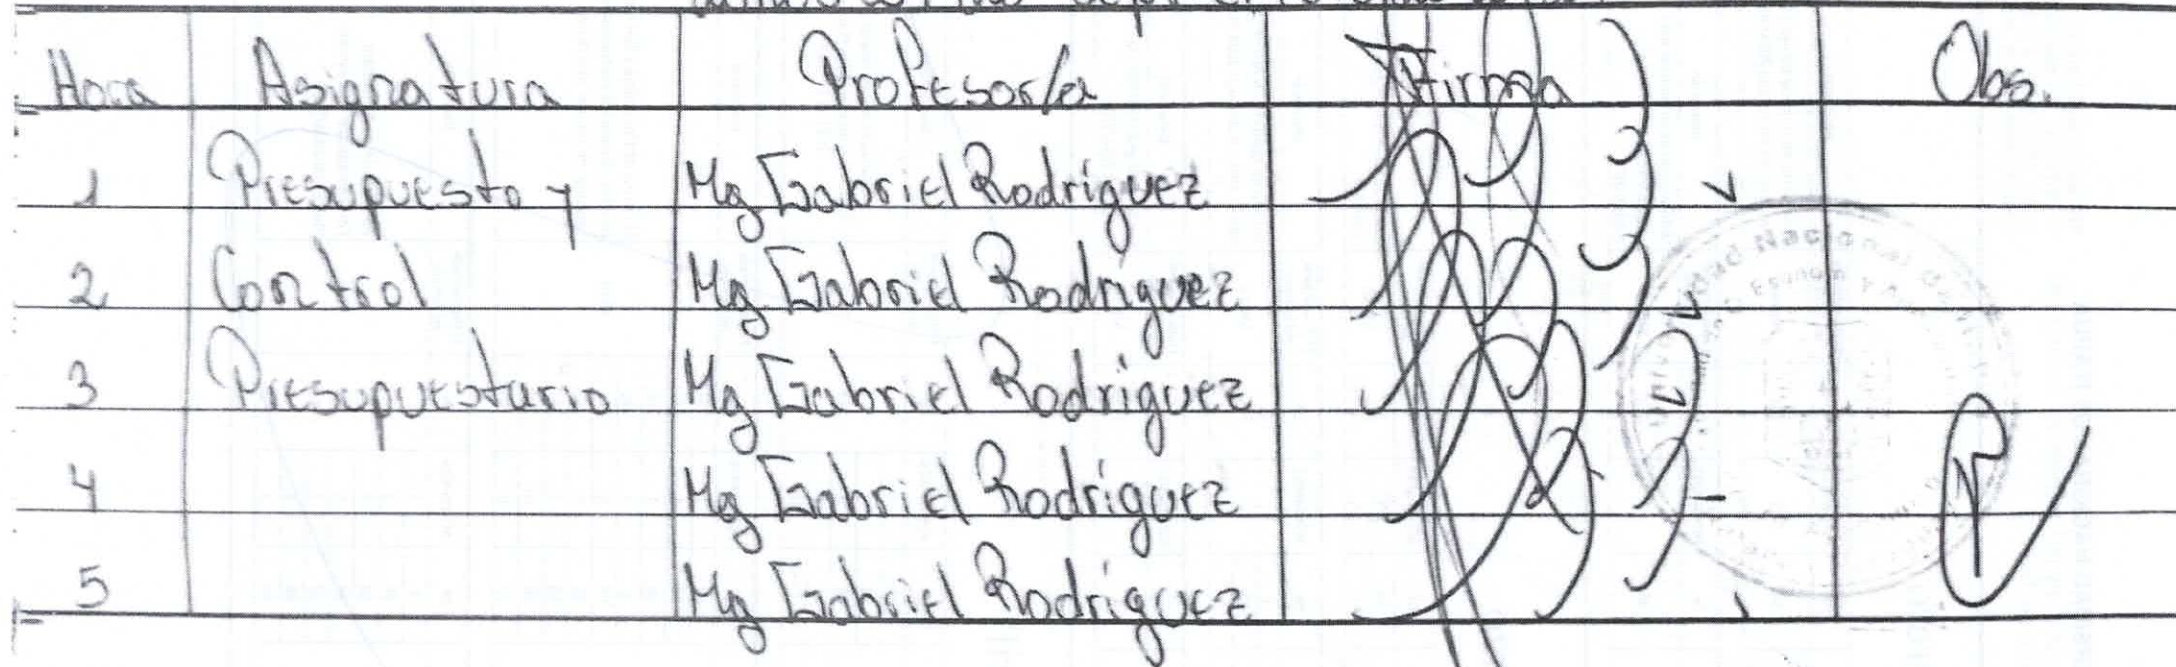 Hora Asignatura Profesor/a Firma Obs.
1 Presupuesto y Mg Gabriel Rodríguez
2 Control Mg Gabriel Rodríguez
3 Presupuestario Mg Gabriel Rodríguez
4 Mg Gabriel Rodríguez
5 Mg Gabriel Rodríguez